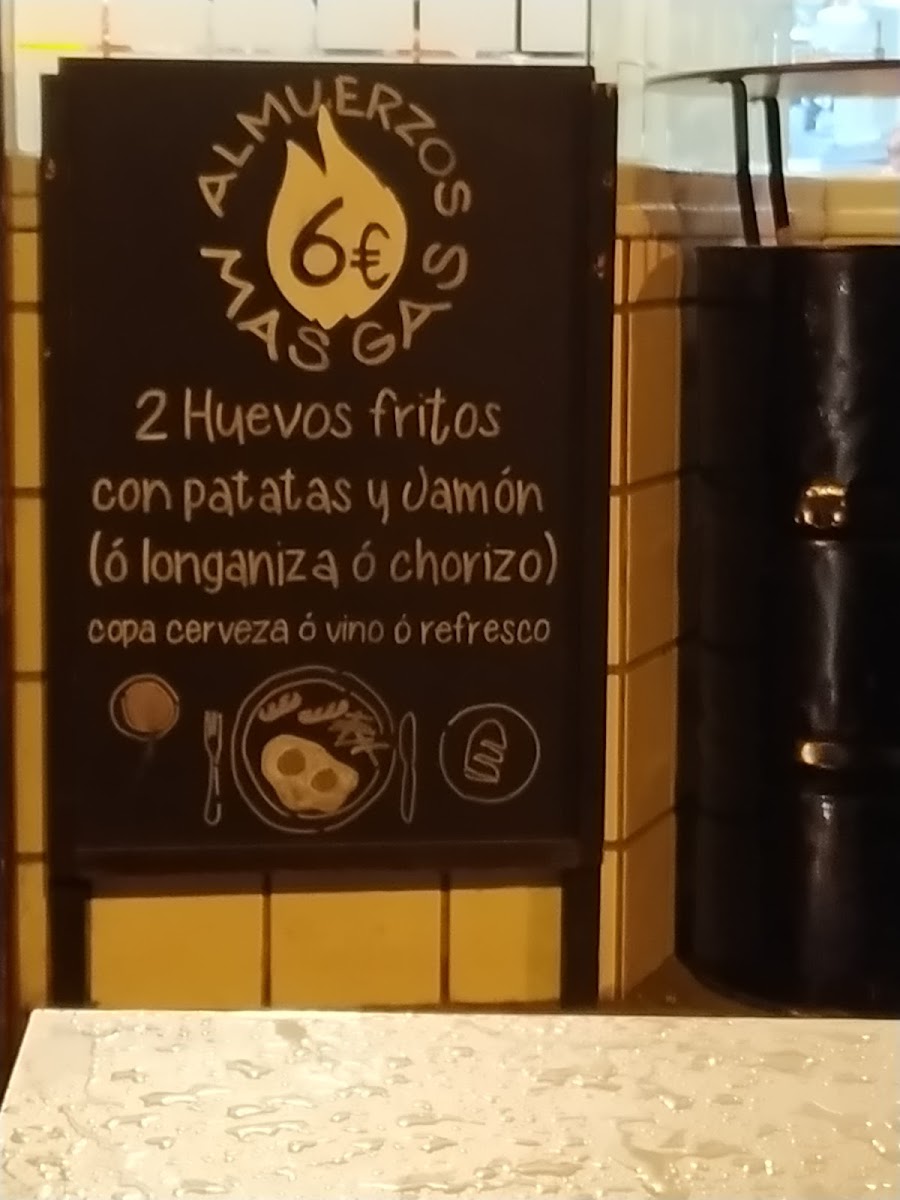 ALMUERZOS
6€
MAS GAS
2 Huevos fritos
con patatas y Jamón
(ó longaniza ó chorizo)
copa cerveza ó vino ó refresco